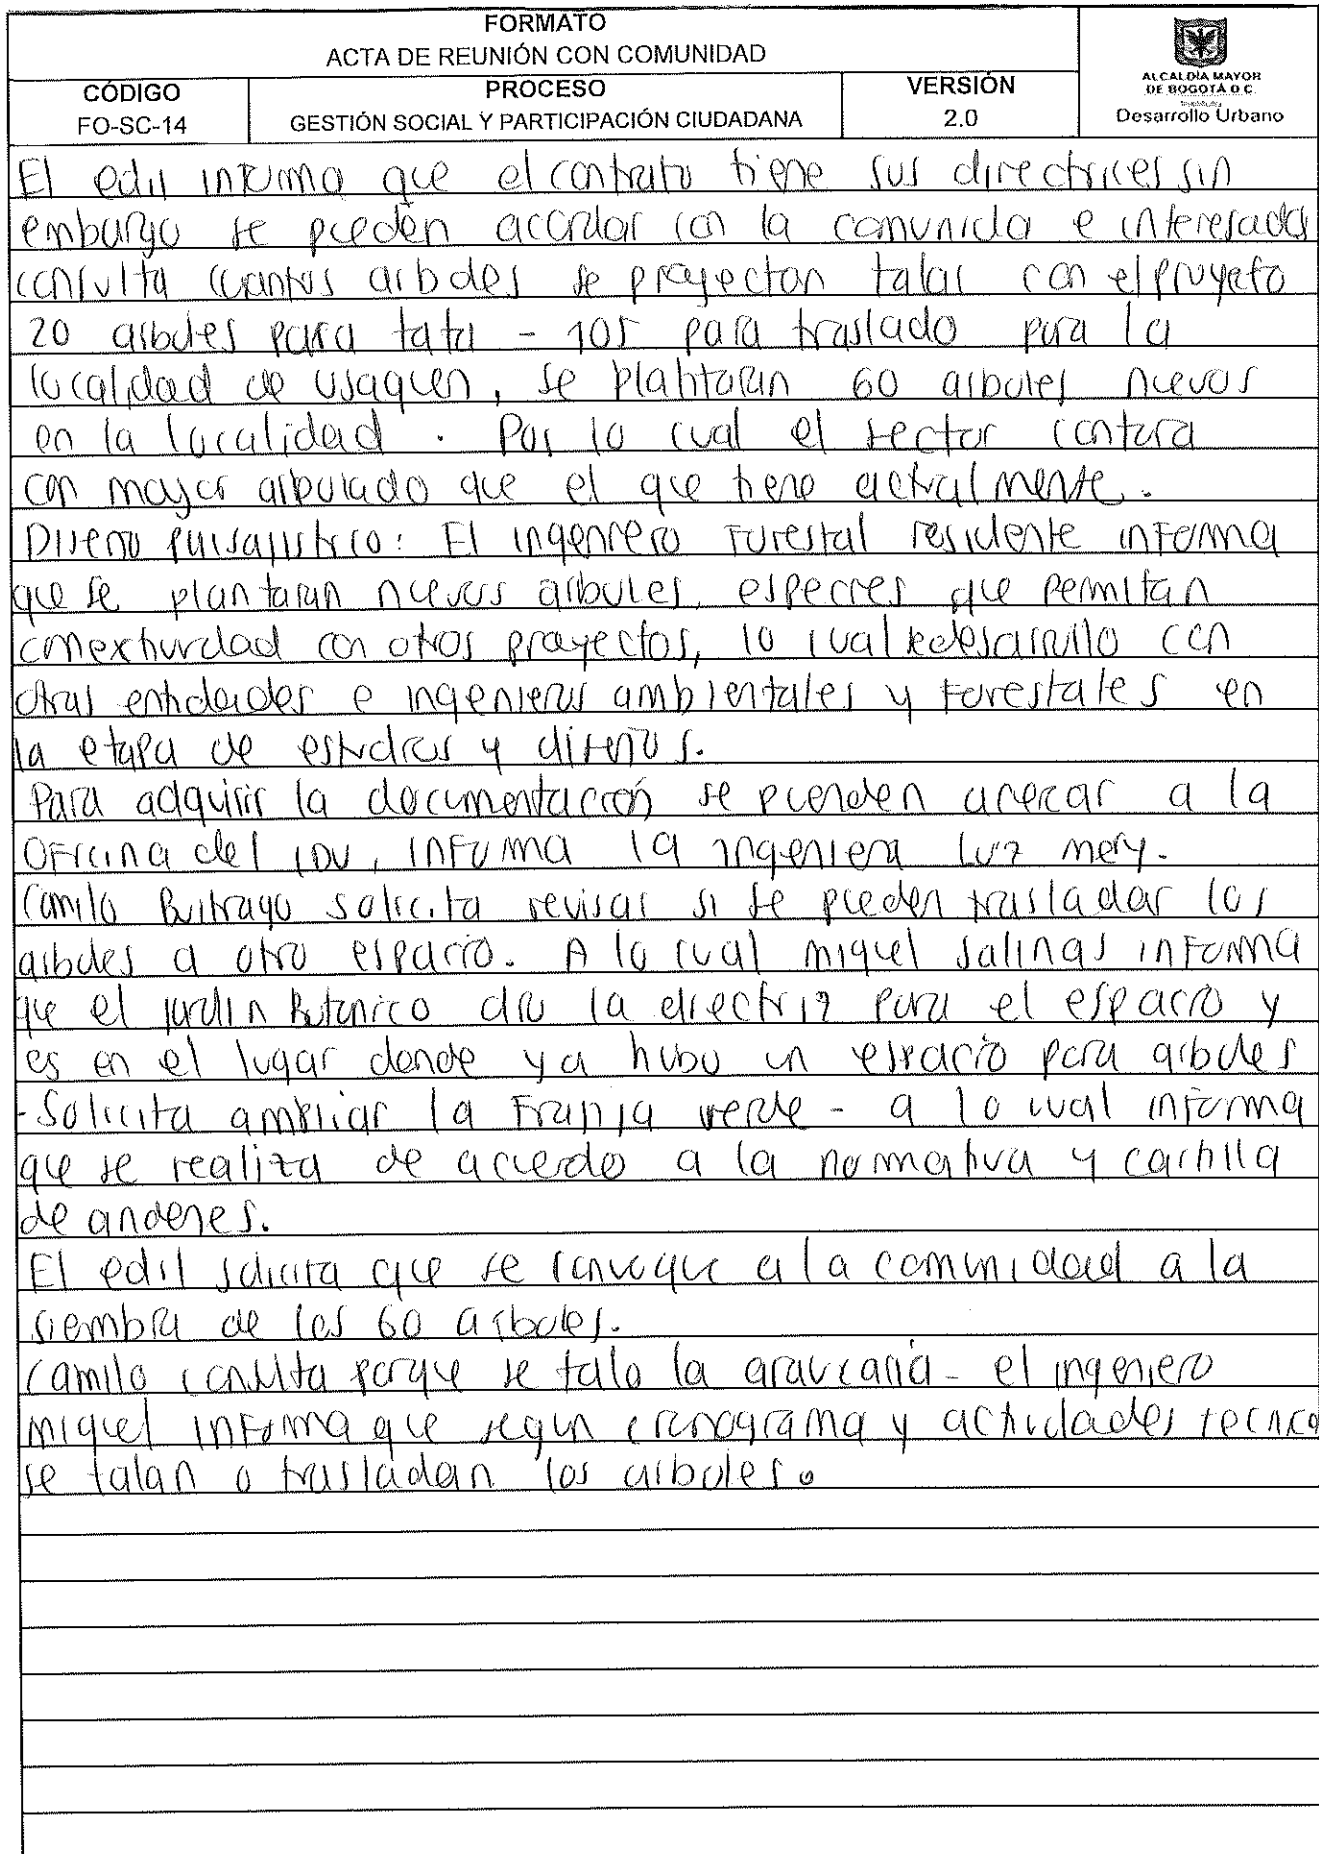 FORMATO
ACTA DE REUNIÓN CON COMUNIDAD
CÓDIGO
FO-SC-14
PROCESO
GESTIÓN SOCIAL Y PARTICIPACIÓN CIUDADANA
VERSIÓN
2.0
ALCALDÍA MAYOR
DE BOGOTÁ D.C.
Desarrollo Urbano
El edil informa que el contrato tiene sus directrices sin
embargo se pueden acordar con la comunida e interesados
consulta cuantos arboles se proyectan talar con el proyeto
20 arboles para tala - 105 para traslado para la
localidad de usaquen, se plantaran 60 arboles nuevos
en la localidad. Por lo cual el sector contara
con mayor arbolado que el que tiene actualmente.
Diseño paisajistico: El ingeniero Forestal residente informa
que se plantaran nuevos arboles, especies que permitan
conextividad con otros proyectos, lo cual se desarrollo con
otras entidades e ingenieros ambientales y Forestales en
la etapa de estudios y diseños.
Para adquirir la documentación se pueden acercar a la
Oficina del IDU, informa la ingeniera Luz mery.
Camilo Buitrago solicita revisar si se pueden trasladar los
arboles a otro espacio. A lo cual miguel Salinas informa
que el jardin Botanico dio la directriz para el espacio y
es en el lugar donde ya hubo un espacio para arboles
-Solicita ampliar la Franja verde - a lo cual informa
que se realiza de acuerdo a la normativa y cartilla
de andenes.
El edil solicita que se convoque a la comunidad a la
siembra de los 60 arboles.
Camilo consulta porque se talo la araucaria - el ingeniero
miguel informa que segun cronograma y actividades tecnica
se talan o trasladan los arboles.